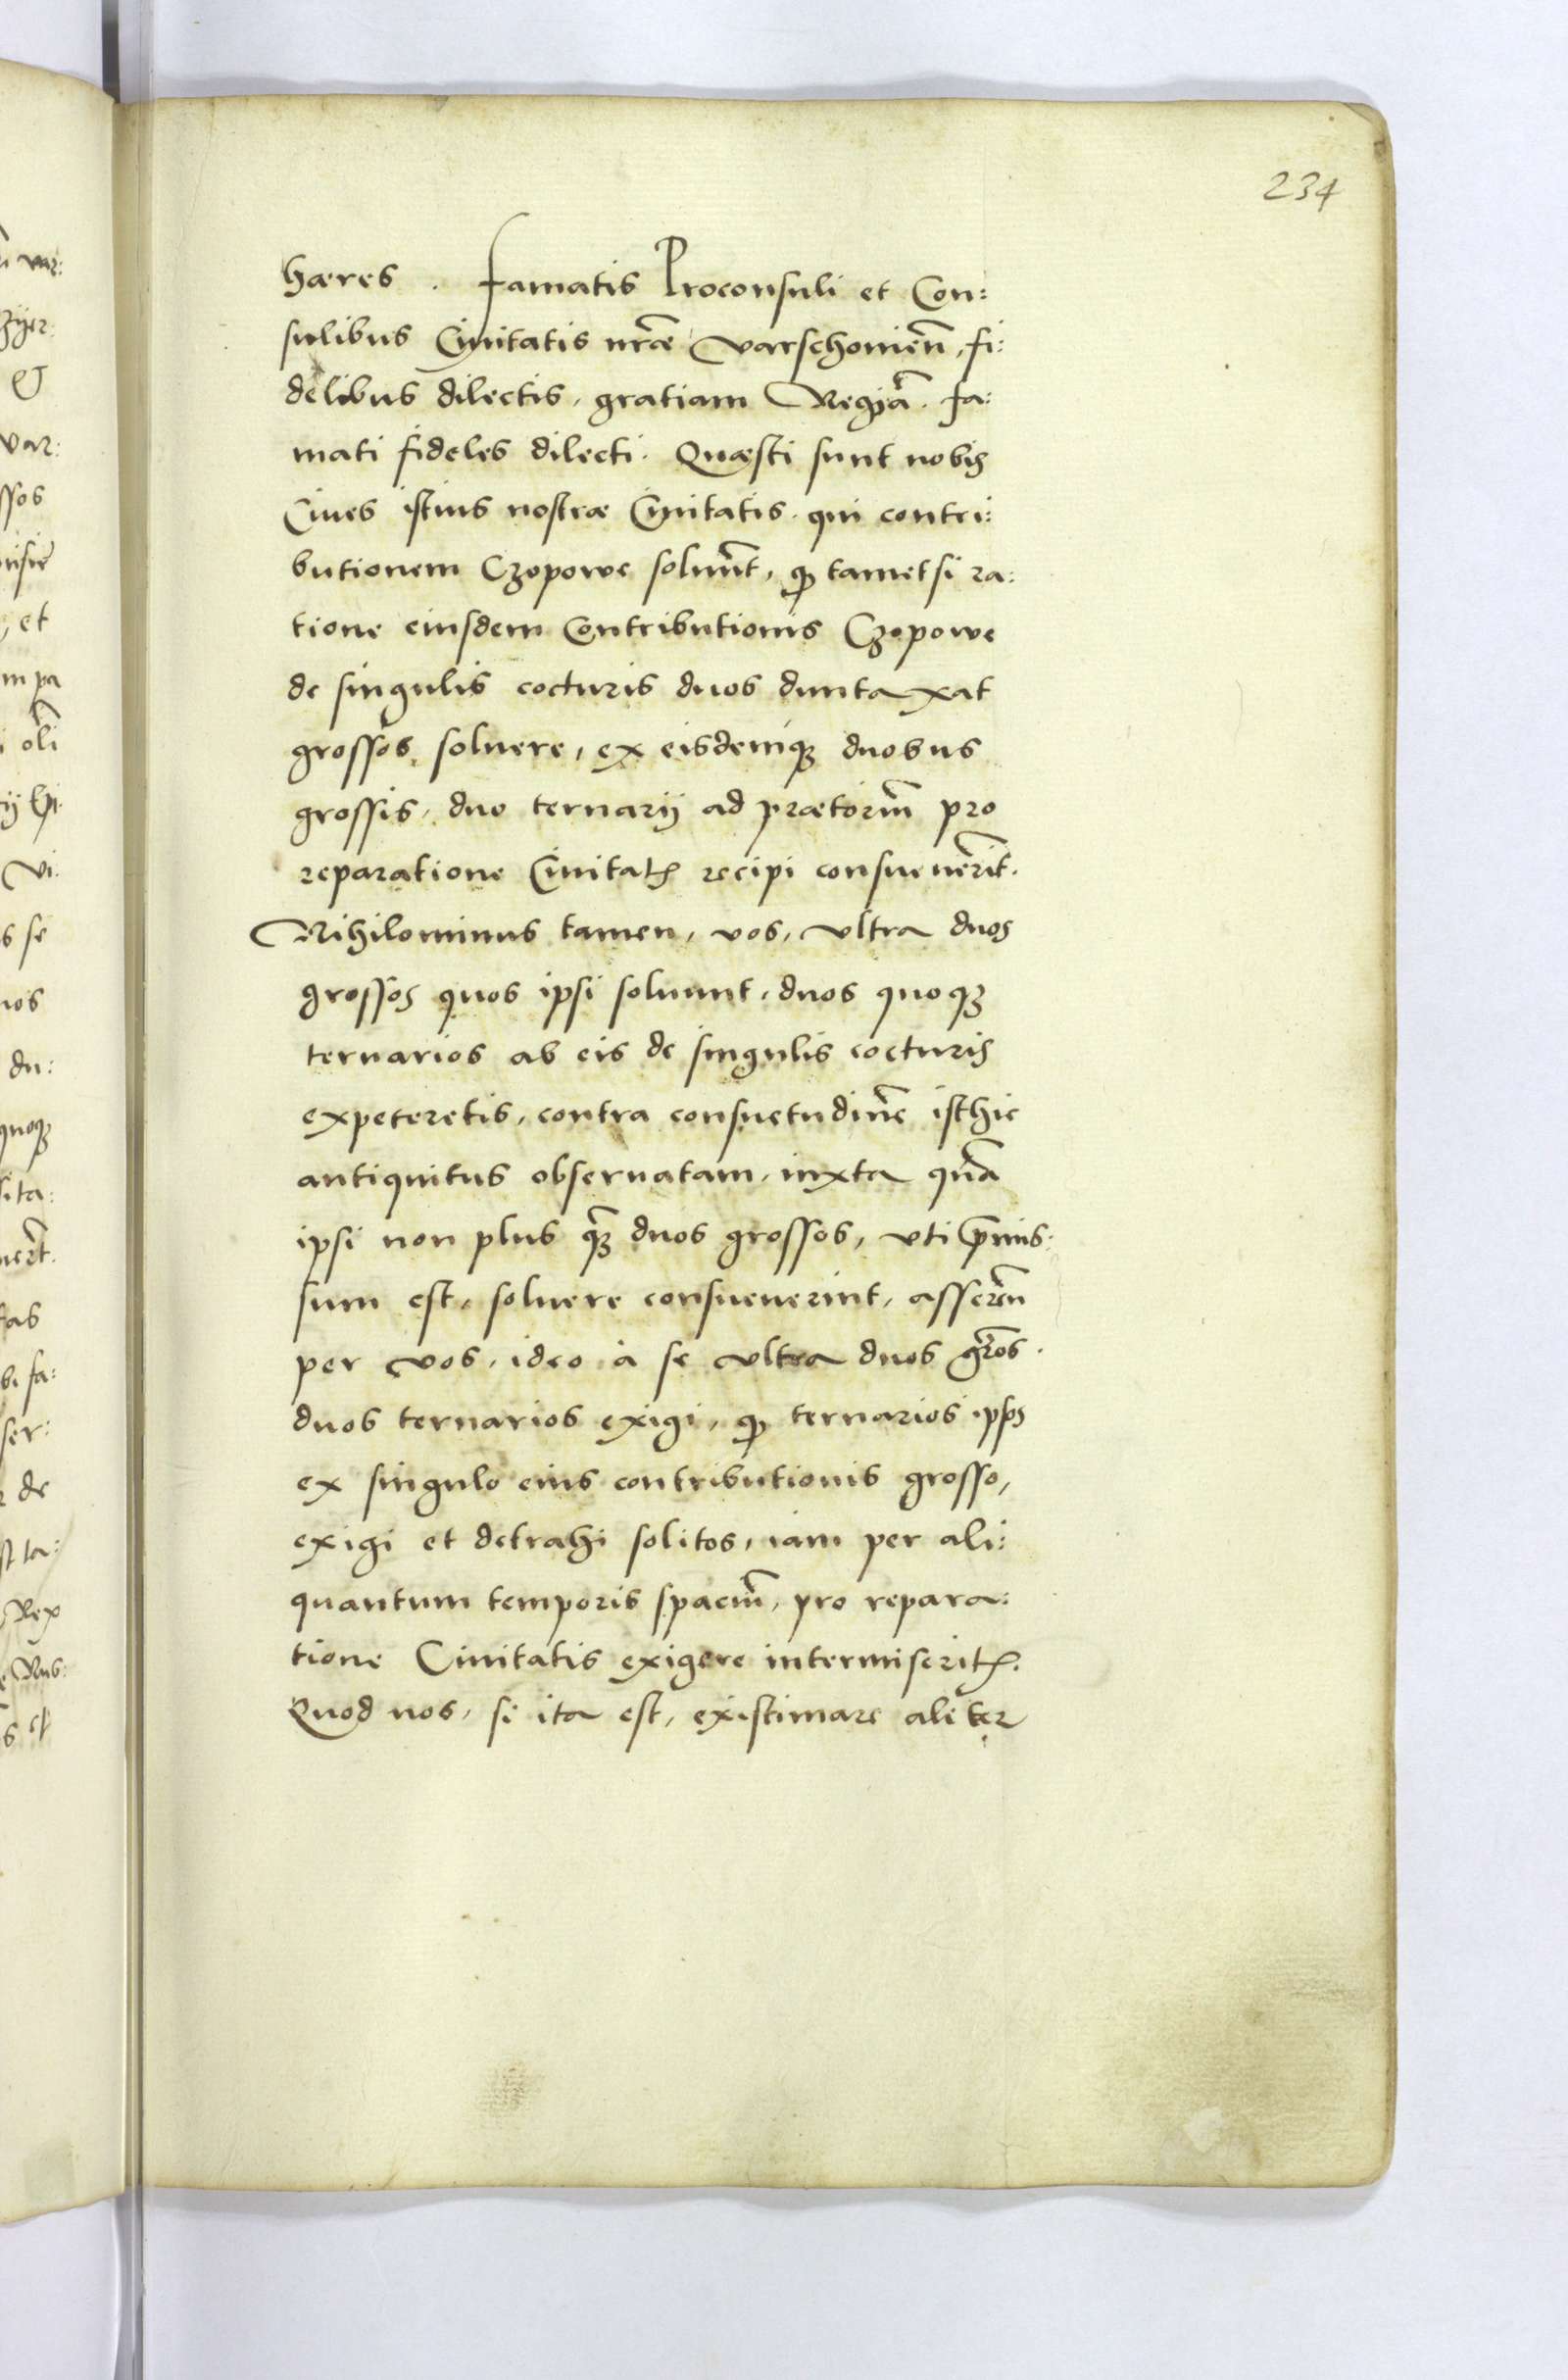 234
hæres. Famatis Proconsuli et Con:
sulibus Ciuitatis nr̃æ Varschouień, fi:
delibus dilectis, gratiam Regiã. Fa:
mati fideles dilecti. Quæsti sunt nobis
Ciues istius nostræ Ciuitatis, qui contri:
butionem Czopowe soluũt, qꝫ tametsi ra:
tione eiusdem Contributionis Czopowe
de singulis cocturis duos duntaxat
grossos soluere, ex eisdemqꝫ duobus
grossis, duo ternarij ad prætoriũ pro
reparatione Ciuitatꝭ recipi consueuerĩt.
Nihilominus tamen, vos, vltra duos
grossos quos ipsi soluunt, duos quoqꝫ
ternarios ab eis de singulis cocturis
expeteretis, contra consuetudinẽ isthic
antiquitus obseruatam, iuxta quã
ipsi non plus qꝫ̃ duos grossos, vti p̃mis:
sum est, soluere consueuerint, asserẽn
per vos, ideo à se vltra duos gr̃os.
duos ternarios exigi, qꝫ ternarios ipsos
ex singulo eius contributionis grosso,
exigi et detrahi solitos, iam per ali:
quantum temporis spaciũ, pro repara:
tione Ciuitatis exigere intermiseritꝭ.
Quod nos, si ita est, existimare aliter